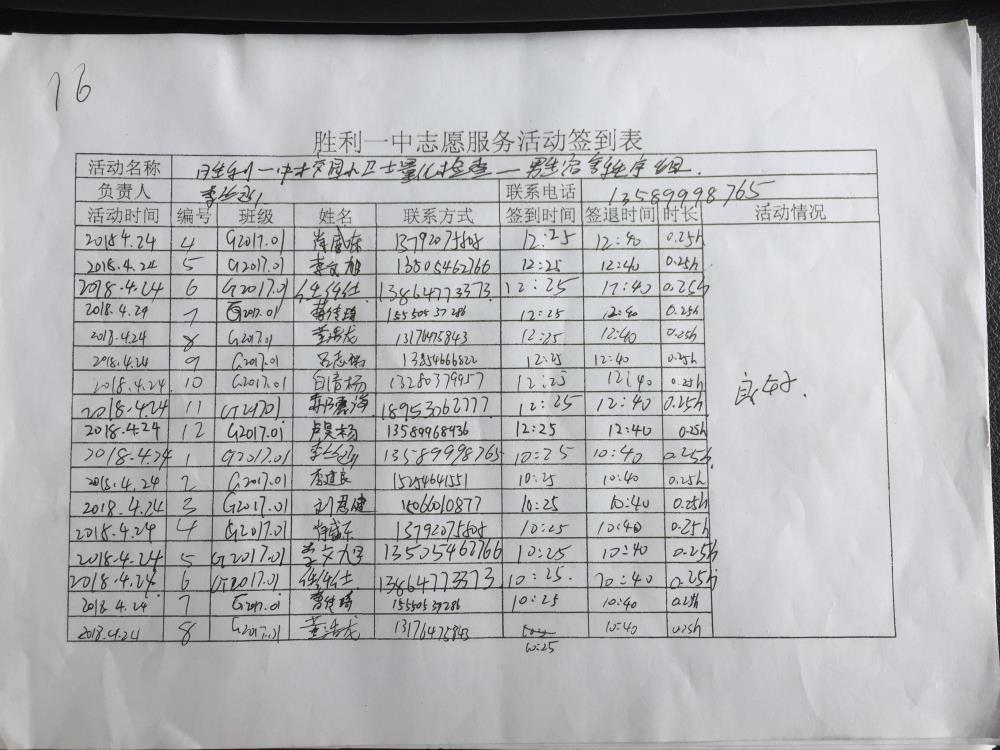 16
胜利一中志愿服务活动签到表
活动名称 胜利一中校园小卫士量化检查—男生宿舍秩序组
负责人 联系电话 13589998765
活动时间 编号 班级 姓名 联系方式 签到时间 签退时间 时长 活动情况
2018.4.24 4 G2017.01 13792075808 12:25 12:40 0.25h
2018.4.24 5 G2017.01 李文旭 13505462766 12:25 12:40 0.25h
2018.4.24 6 G2017.01 任仕仕 13864773373 12:25 12:40 0.25h
2018.4.24 7 G2017.01 15550537286 12:25 12:40 0.25h
2018.4.24 8 G2017.01 董浩龙 13176475843 12:25 12:40 0.25h
2018.4.24 9 G2017.01 13854666822 12:25 12:40 0.25h
2018.4.24 10 G2017.01 白清杨 13280379957 12:25 12:40 0.25h
2018.4.24 11 G2017.01 18953062777 12:25 12:40 0.25h
良好
2018.4.24 12 G2017.01 卢昊杨 13589968936 12:25 12:40 0.25h
2018.4.24 1 G2017.01 13589998765 10:25 10:40 0.25h
2018.4.24 2 G2017.01 李建良 15254641551 10:25 10:40 0.25h
2018.4.24 3 G2017.01 刘君健 15066010877 10:25 10:40 0.25h
2018.4.24 4 G2017.01 13792075808 10:25 10:40 0.25h
2018.4.24 5 G2017.01 李文旭 13505462766 10:25 10:40 0.25h
2018.4.24 6 G2017.01 任仕仕 13864773373 10:25 10:40 0.25h
2018.4.24 7 G2017.01 15550537286 10:25 10:40 0.25h
2018.4.24 8 G2017.01 董浩龙 13176475843 10:25 10:40 0.25h